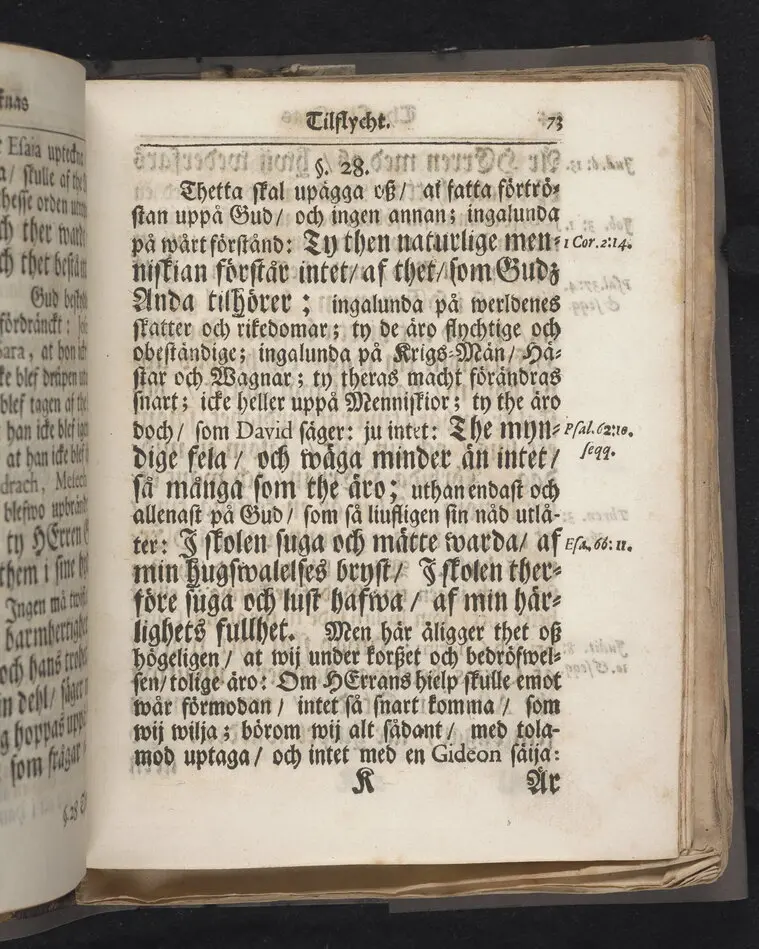 Tilflycht. 73
§. 28.
Thetta skal upägga oß/ at fatta förtrö-
stan uppå Gud/ och ingen annan; ingalunda
på wårt förstånd: Ty then naturlige men-
niskian förstår intet/ af thet/ som Gudz
Anda tilhörer; ingalunda på werldenes
skatter och rikedomar; ty de äro flychtige och
obeständige; ingalunda på Krigs-Män/ Hä-
star och Wagnar; ty theras macht förändras
snart; icke heller uppå Menniskior; ty the äro
doch/ som David säger: ju intet: The myn-
dige fela/ och wäga minder än intet/
så många som the äro; uthan endast och
allenast på Gud/ som så liufligen sin nåd utlå-
ter: I skolen suga och mätte warda/ af
min hugswalelses bryst/ I skolen ther-
före suga och lust hafwa/ af min här-
lighets fullhet. Men här åligger thet oß
högeligen/ at wij under korßet och bedröfwel-
sen/ tolige äro: Om HErrans hielp skulle emot
wår förmodan/ intet så snart komma/ som
wij wilja; börom wij alt sådant/ med tola-
mod uptaga/ och intet med en Gideon säija:
K Är
1 Cor. 2:14.
Psal. 62:10.
seqq.
Esa. 66: 11.
Esaia
skulle af
hesse orden
ch ther
ch thet
Gud
fördränckt:
Sara, at hon
ke blef dräpen
blef tagen af
han icke blef
at han icke blef
blefwo
ty HErren
them i sine
Ingen må
barmhertighet
och hans
n dehl/ säger
hoppas
som frågar
§. 28